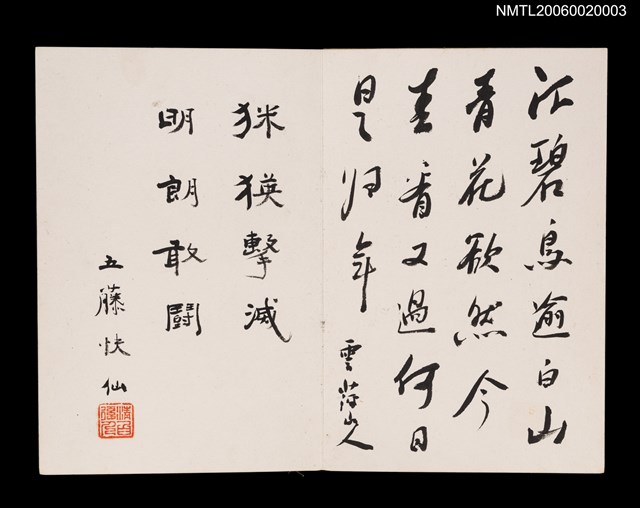 NMTL20060020003
江碧鳥逾白山
青花欲然今
春看又過何日
是归年
雲萍山人
狣㺎擊滅
明朗敢闘
五藤快仙